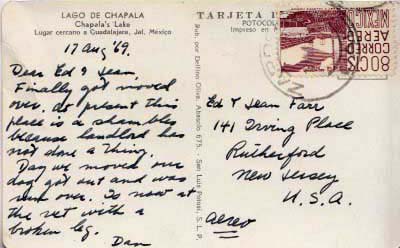 LAGO DE CHAPALA
Chapala's Lake
Lugar cercano a Guadalajara, Jal. México
17 Aug '69.
Dear Ed & Jean,
Finally got moved
over. At present this
place is a shambles
because landlord has
not done a thing.
Day we moved one
dog got out and was
run over. Is now at
the vet with a
broken leg.
Dan
Pub. por Delfino Oliva. Abasolo 675. - San Luis Potosí, S. L. P.
TARJETA
Impreso en
80 CTS
AEREO
CORREO
MEXICO
Ed & Jean Farr
141 Irving Place
Rutherford
New Jersey
U. S. A.
Aereo